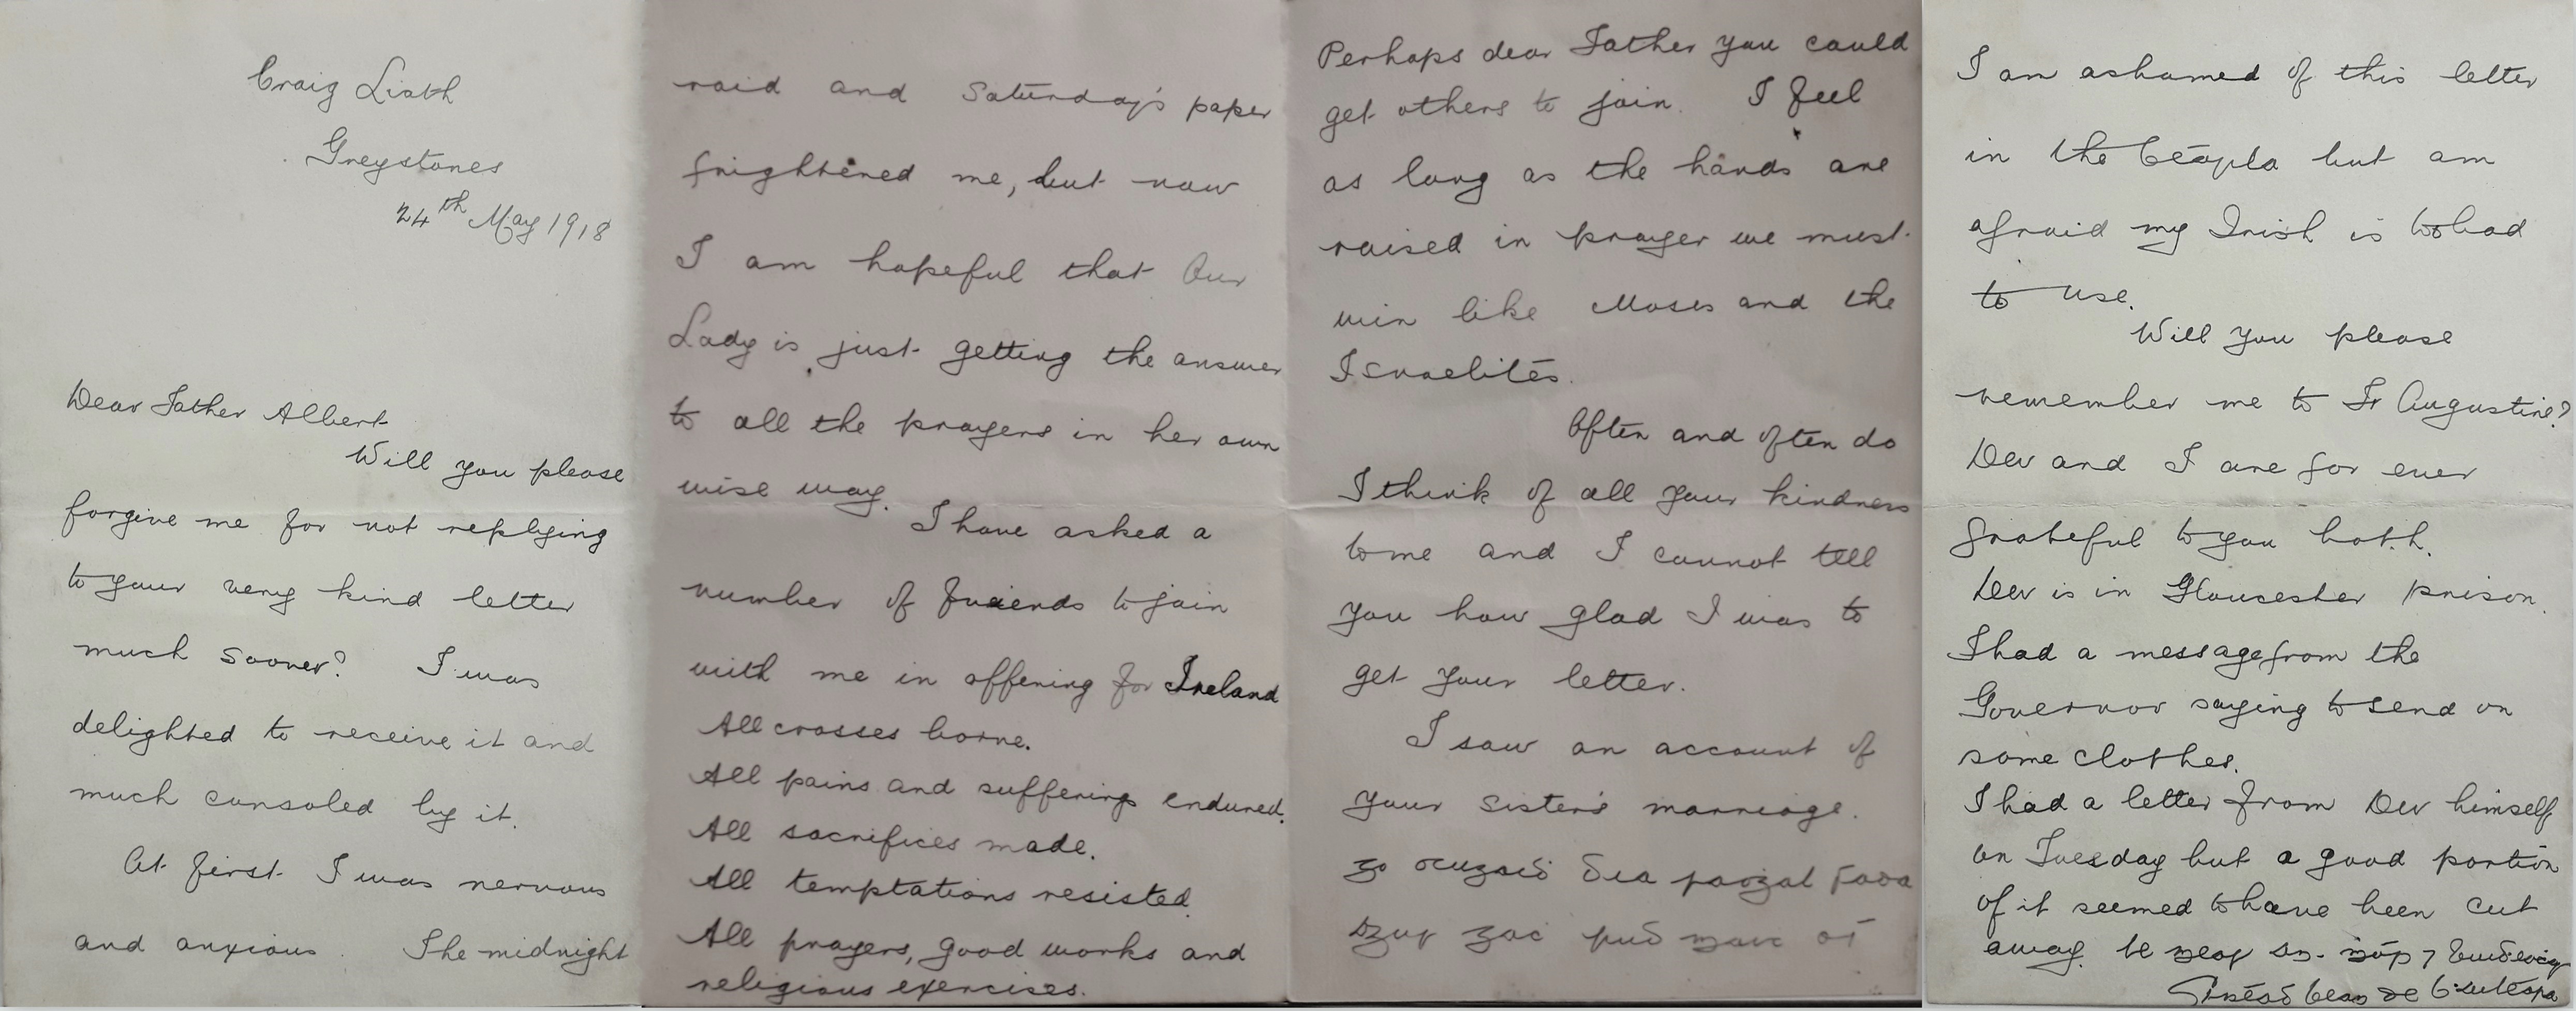 Craig Liath
Greystones
24th May 1918
Dear Father Albert
Will you please
forgive me for not replying
to your very kind letter
much sooner? I was
delighted to receive it and
much consoled by it.
At first I was nervous
and anxious. The midnight
raid and Saturday's paper
frightened me, but now
I am hopeful that Our
Lady is just getting the answer
to all the prayers in her own
wise way.
I have asked a
number of friends to join
with me in offering for Ireland
All crosses borne.
All pains and sufferings endured.
All sacrifices made.
All temptations resisted.
All prayers, good works and
religious exercises.
Perhaps dear Father you could
get others to join. I feel
as long as the hands are
raised in prayer we must
win like Moses and the
Israelites.
Often and often do
I think of all your kindness
to me and I cannot tell
you how glad I was to
get your letter.
I saw an account of
your sister's marriage.
Go dtugaidh Dia saoghal fada
agus gac
I am ashamed of this letter
in the Béarla but am
afraid my Irish is too bad
to use.
Will you please
remember me to Fr Augustine?
Dev and I are for ever
grateful to you both.
Dev is in Gloucester prison.
I had a message from the
Governor saying to send on
some clothes.
I had a letter from Dev himself
on Tuesday but a good portion
of it seemed to have been cut
away. le meas an-mhór ⁊
Sinéad bean de